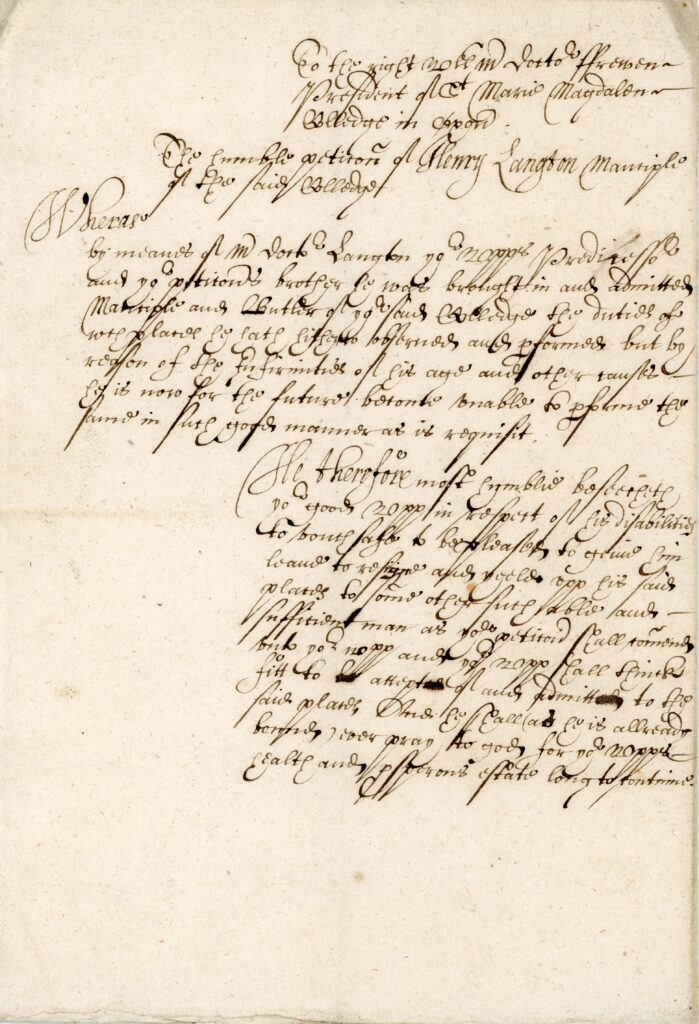 To the right woll mr doctor ffrewen
President of St Marie Magdalen
Colledge in Oxon.
The humble peticon of Henry Langton Manciple
of the said Colledge
Wheras
by meanes of mr doctor Langton yor wopps Predicessor
and yor peticors brother he was brought in and admitted
Manciple and Butler of yor said Colledge the duties of
wch places he hath hitherto observed and pformed but by
reason of the Infirmities of his age and other causes
he is now for the future become vnable to pforme the
same in such good manner as is requisit.
He therefore most humblie beseecheth
yor good wopp in respect of his disabilities
to vouchsafe to be pleased to geive him
leave to resigne and yyeld vpp his said
places to some other such able and
sufficient man as yor peticor shall comend
vnto yor wopp and yor wopp shall thincke
fitt to be accepted of and admitted to the
said places And he shall (as he is allready
bounden) ever pray to god for yor wopps
health and psperous estate long to continue.